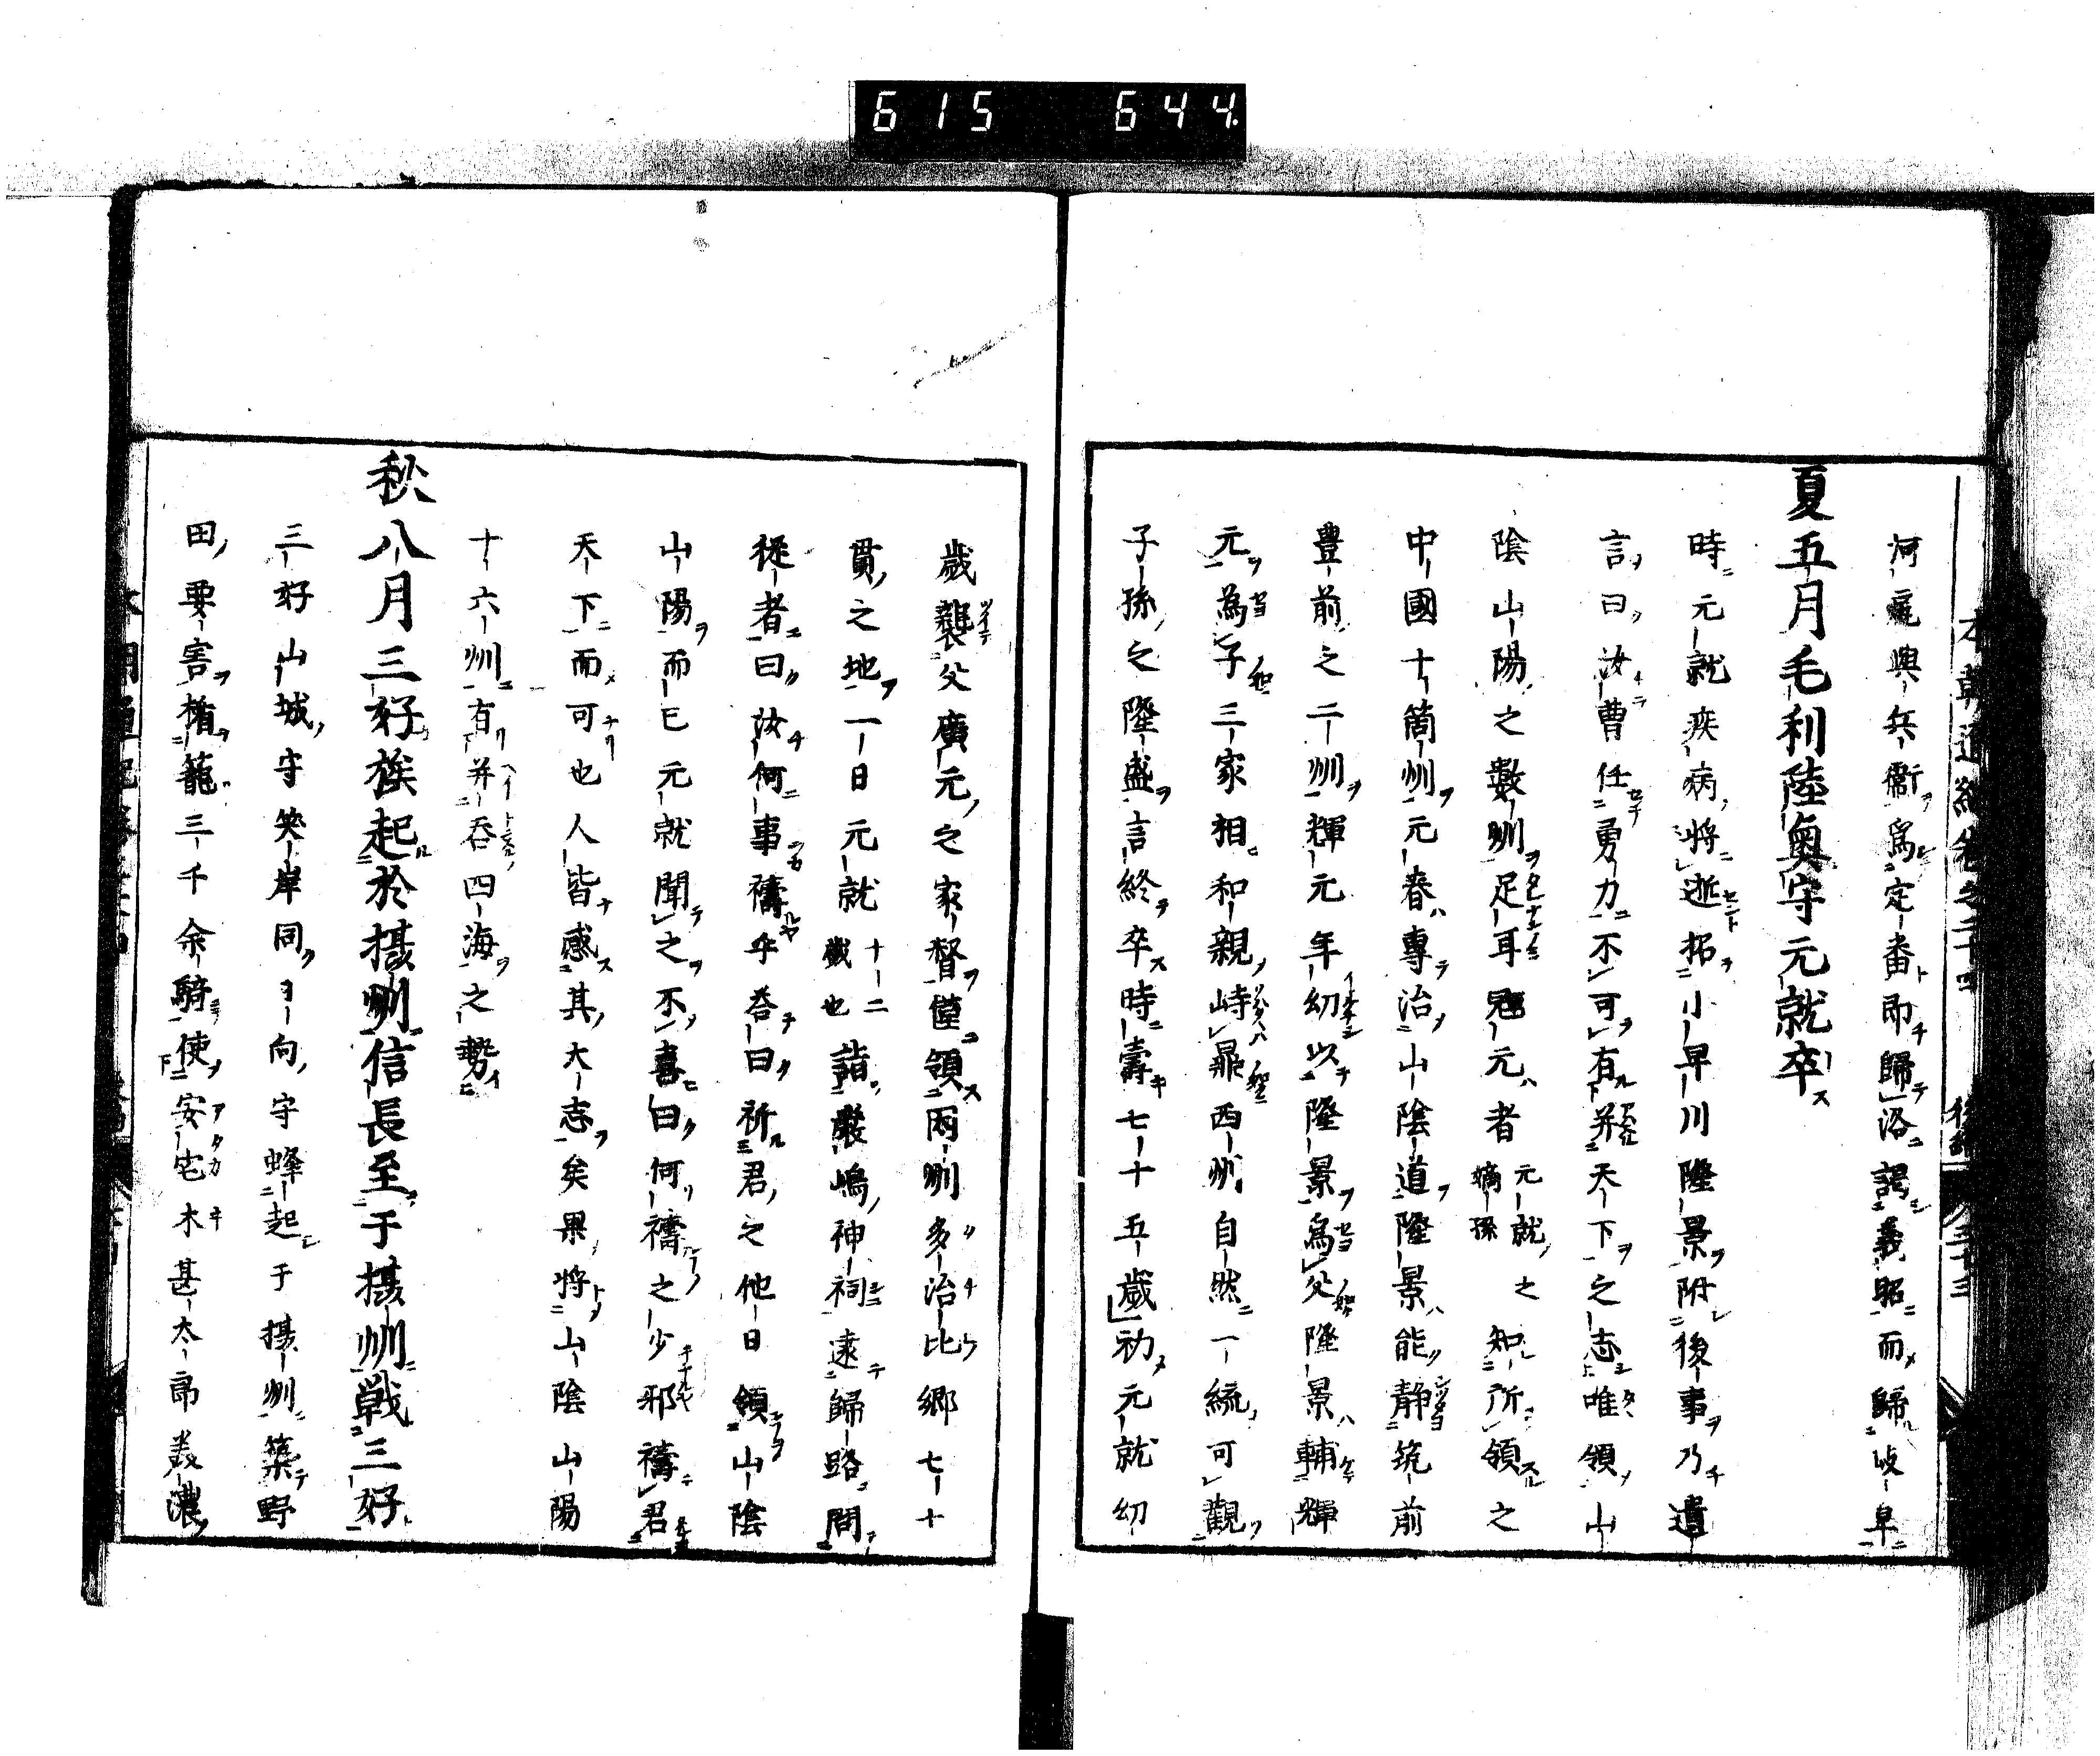 615 644.
河電興兵衞爲定番即歸洛謁義昭而歸岐阜
夏五月毛利陸奧守元就卒
時元就疾病將逝招小早川隆景附後事乃遺
言曰汝曹任勇力不可有并天下之志唯領山
陰山陽之數州足耳輝元者元就之嫡孫知所領之
中國十箇州元春專治山陰道隆景能靜筑前
豊前之二州輝元年幼以隆景爲父隆景輔輝
元爲子三家相和親峙鼎西州自然一統可觀
子孫之隆盛言終卒時壽七十五歲初元就幼
歲襲父廣元之家督僅領兩州多治比郷七十
貫之地一日元就十二歲也詣嚴嶋神祠遂歸路問
從者曰汝何事禱乎答曰祈君之他日領山陰
山陽而已元就聞之不喜曰何禱之少邪禱君
天下而可也人皆感其大志矣果將山陰山陽
十六州有并呑四海之勢
秋八月三好族起於攝州信長至于攝州戰三好
三好山城守笑岸同日向守蜂起于攝州築野
田要害楯籠三千余騎使安宅木甚太郎美濃